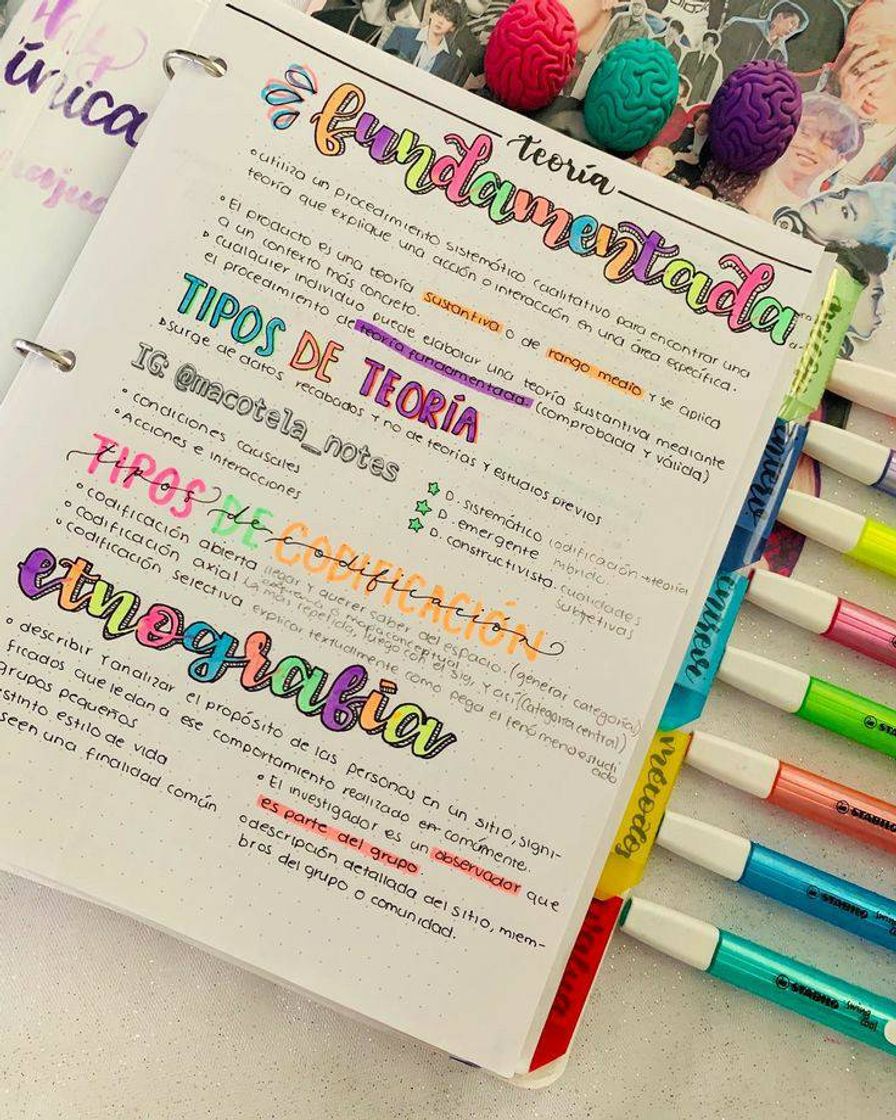 única
teoría
fundamentada
•utiliza un procedimiento sistemático cualitativo para encontrar una
teoría que explique una acción o interacción en una área específica.
•El producto es una teoría sustantiva o de rango medio y se aplica
a un contexto más concreto.
cualquier individuo puede elaborar una teoría sustantiva mediante
el procedimiento de teoría fundamentada (comprobada y válida)
surge de datos recabados y no de teorías y estudios previos
TIPOS DE TEORÍA
IG: @macotela_notes
• condiciones causales
•Acciones e interacciones
D. sistemático codificación→teoría
D. emergente híbrido.
D. constructivista. cualidades
subjetivas
TIPOS DE CODIFICACIÓN
tipos de codificación
•codificación abierta llegar y querer saber del espacio. (generar categoría)
•codificación axial la más repetida, luego con el sig. y así (categoría central)
•codificación selectiva explicar textualmente como pega el fenómeno estudi
ado
mapa conceptual
etnografía
• describir y analizar el propósito de las personas en un sitio, signi-
ficados que le dan a ese comportamiento realizado en comúnmente.
grupos pequeños
estilo de vida
seen una finalidad común
•El investigador es un observador que
es parte del grupo.
•descripción detallada del sitio, miem-
bros del grupo o comunidad.
métodos
STABILO
STABILO
STABILO
STABILO swing cool